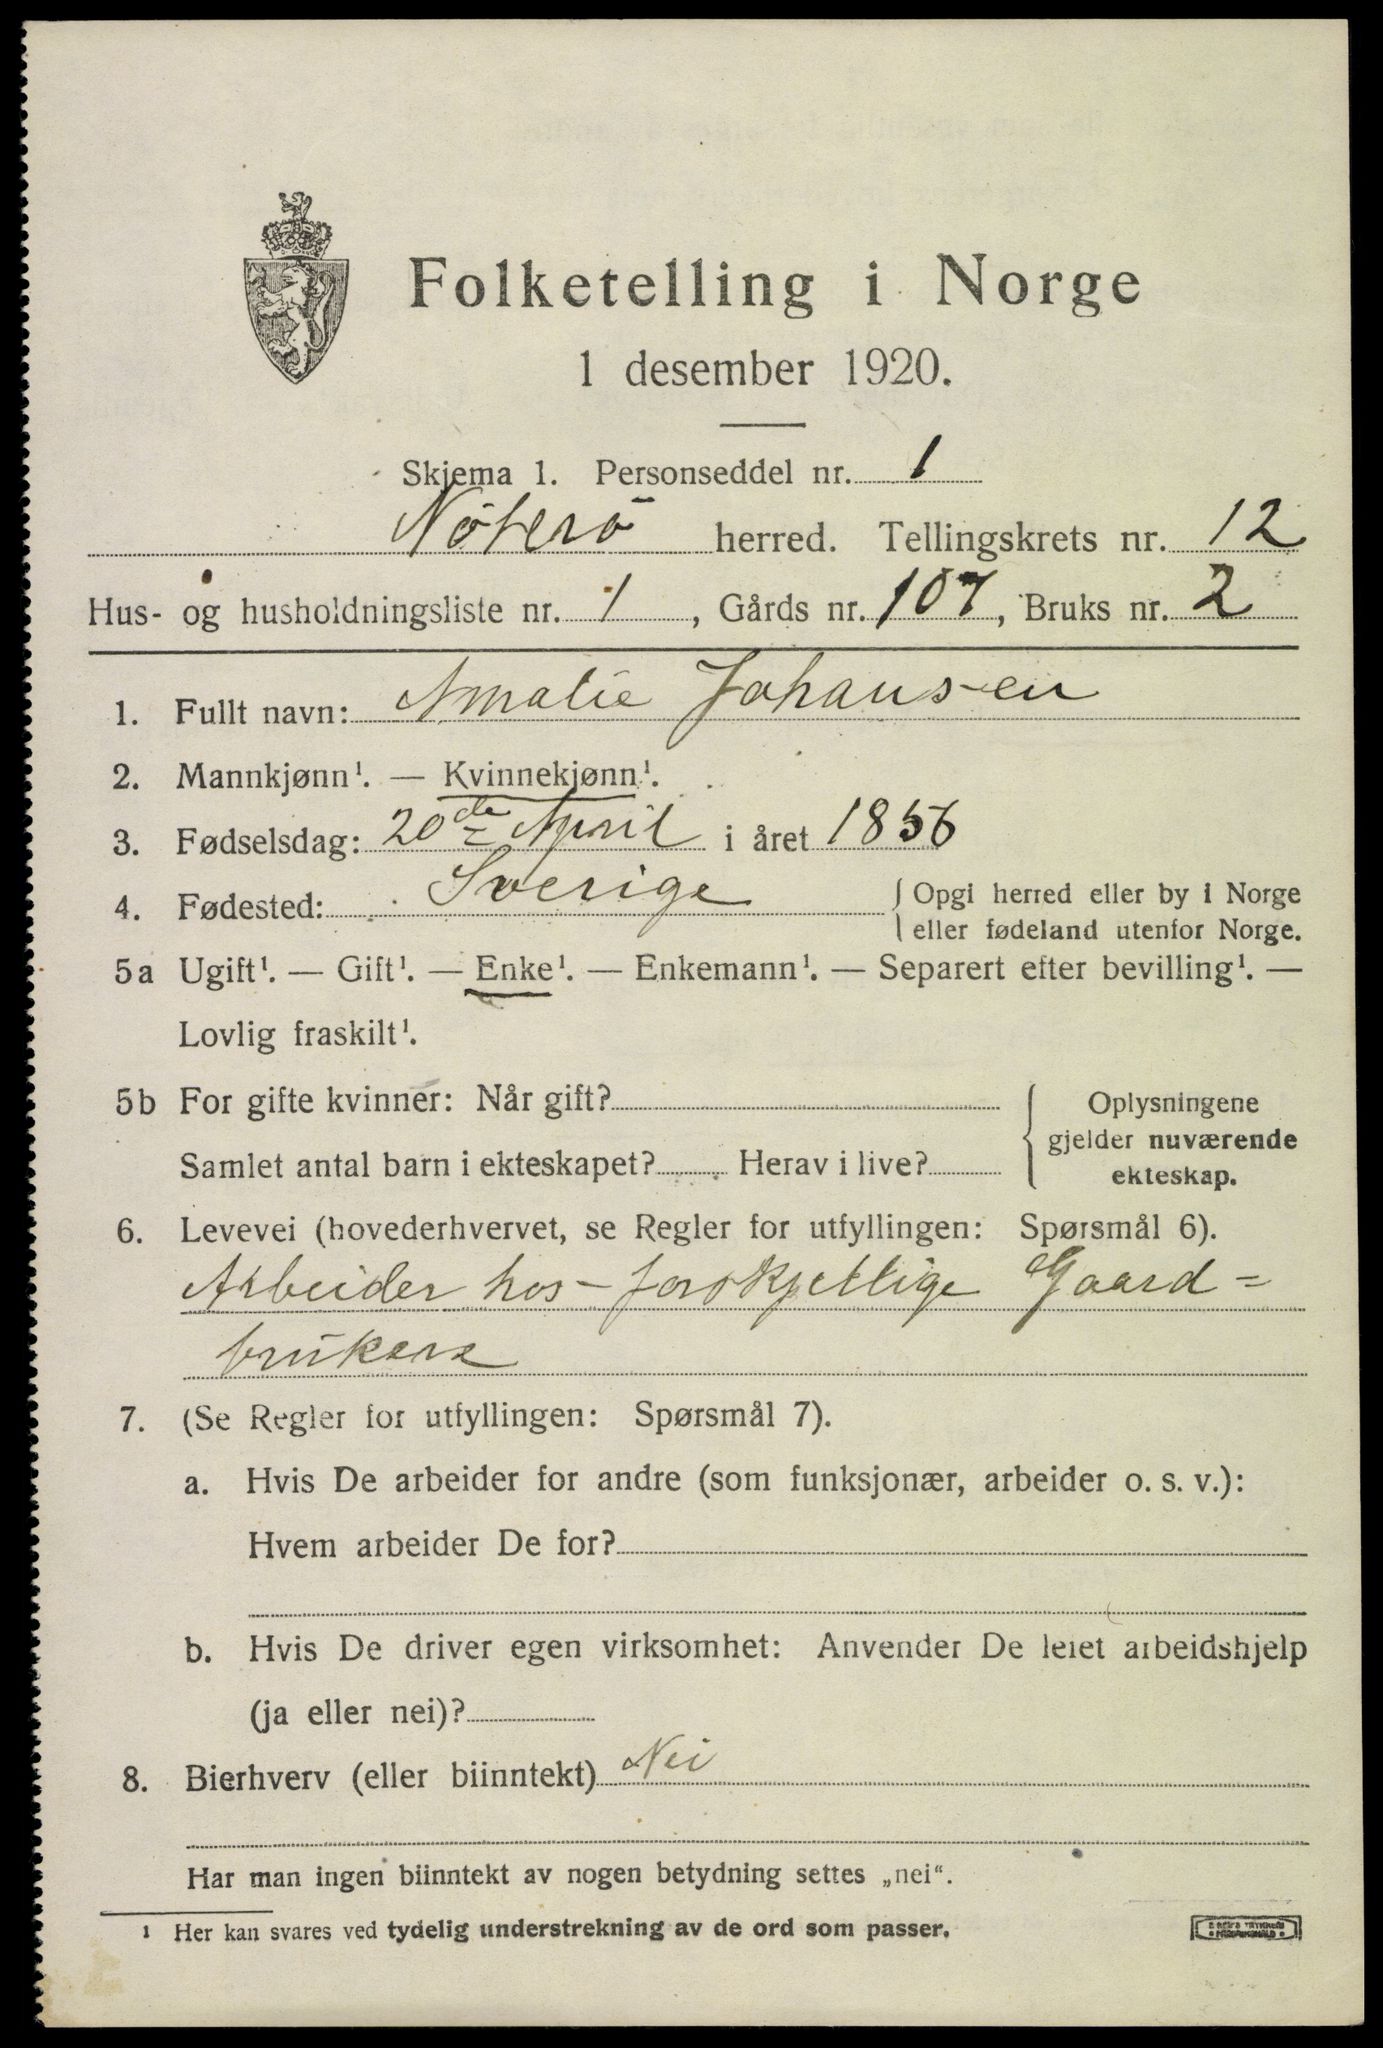 Folketelling i Norge
1 desember 1920.
Skjema 1. Personseddel nr. 1
Nöterö herred. Tellingskrets nr. 12
Hus- og husholdningsliste nr. 1, Gårds nr. 107, Bruks nr. 2
1. Fullt navn: Amalie Johansen
2. Mannkjønn¹. — Kvinnekjønn¹.
3. Fødselsdag: 20de April i året 1856
4. Fødested: Sverige { Opgi herred eller by i Norge
eller fødeland utenfor Norge.
5a Ugift¹. — Gift¹. — Enke¹. — Enkemann¹. — Separert efter bevilling¹. —
Lovlig fraskilt¹.
5b For gifte kvinner: Når gift?
Samlet antal barn i ekteskapet? Herav i live?
{ Oplysningene
gjelder nuværende
ekteskap.
6. Levevei (hovederhvervet, se Regler for utfyllingen: Spørsmål 6).
Arbeider hos forskjellige Gaard=
brukere
7. (Se Regler for utfyllingen: Spørsmål 7).
a. Hvis De arbeider for andre (som funksjonær, arbeider o. s. v.):
Hvem arbeider De for?
b. Hvis De driver egen virksomhet: Anvender De leiet arbeidshjelp
(ja eller nei)?
8. Bierhverv (eller biinntekt) Nei
Har man ingen biinntekt av nogen betydning settes „nei“.
¹ Her kan svares ved tydelig understrekning av de ord som passer.